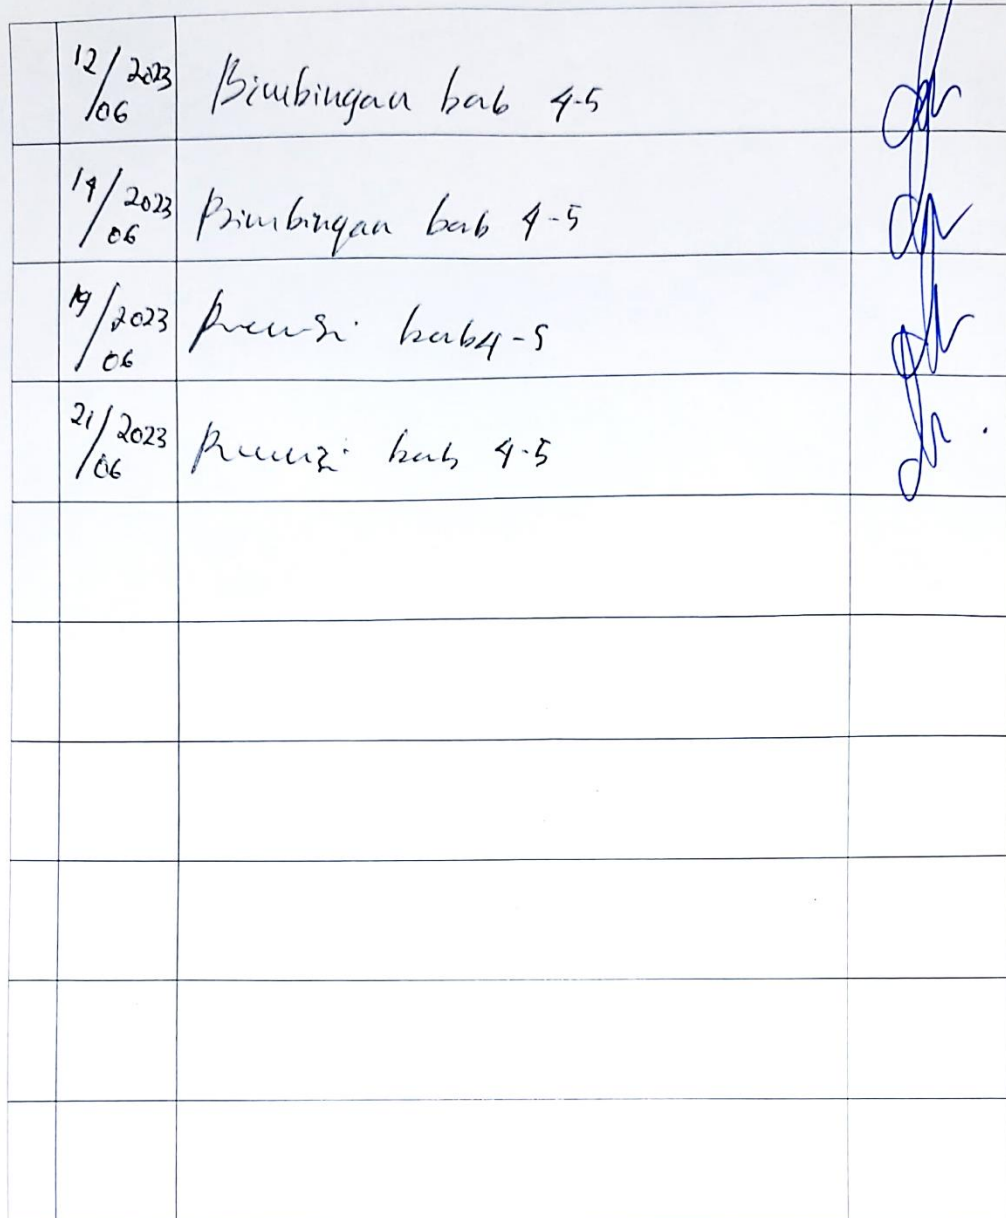 12/06 2023 Bimbingan bab 4-5
14/06 2023 Bimbingan bab 4-5
19/06 2023 Revisi bab 4-5
21/06 2023 Revisi bab 4-5